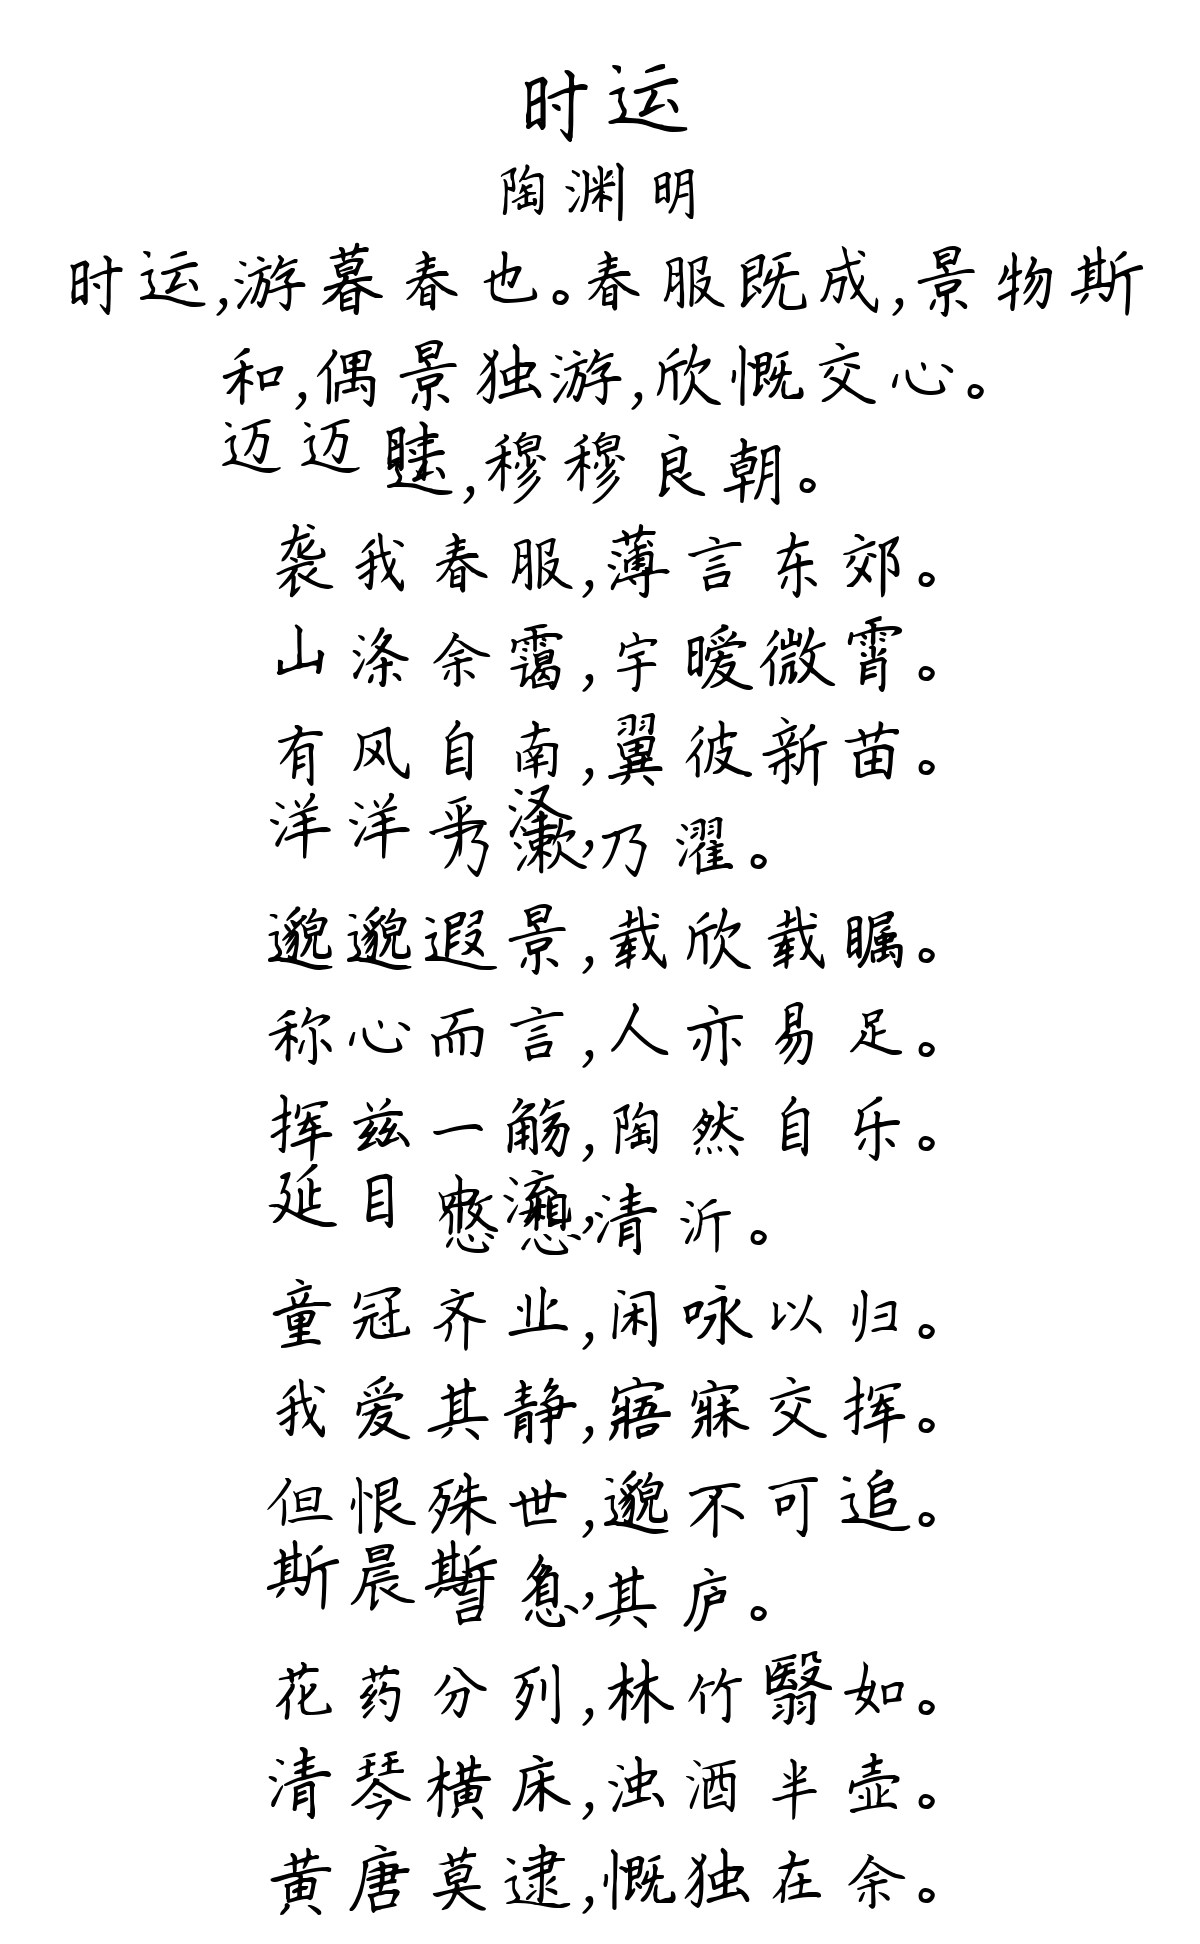 时运
陶渊明
时运,游暮春也。春服既成,景物斯
和,偶景独游,欣慨交心。
迈迈时运,穆穆良朝。
袭我春服,薄言东郊。
山涤余霭,宇暧微霄。
有风自南,翼彼新苗。
洋洋平泽,乃漱乃濯。
邈邈遐景,载欣载瞩。
称心而言,人亦易足。
挥兹一觞,陶然自乐。
延目中流,悠想清沂。
童冠齐业,闲咏以归。
我爱其静,寤寐交挥。
但恨殊世,邈不可追。
斯晨斯夕,言息其庐。
花药分列,林竹翳如。
清琴横床,浊酒半壶。
黄唐莫逮,慨独在余。